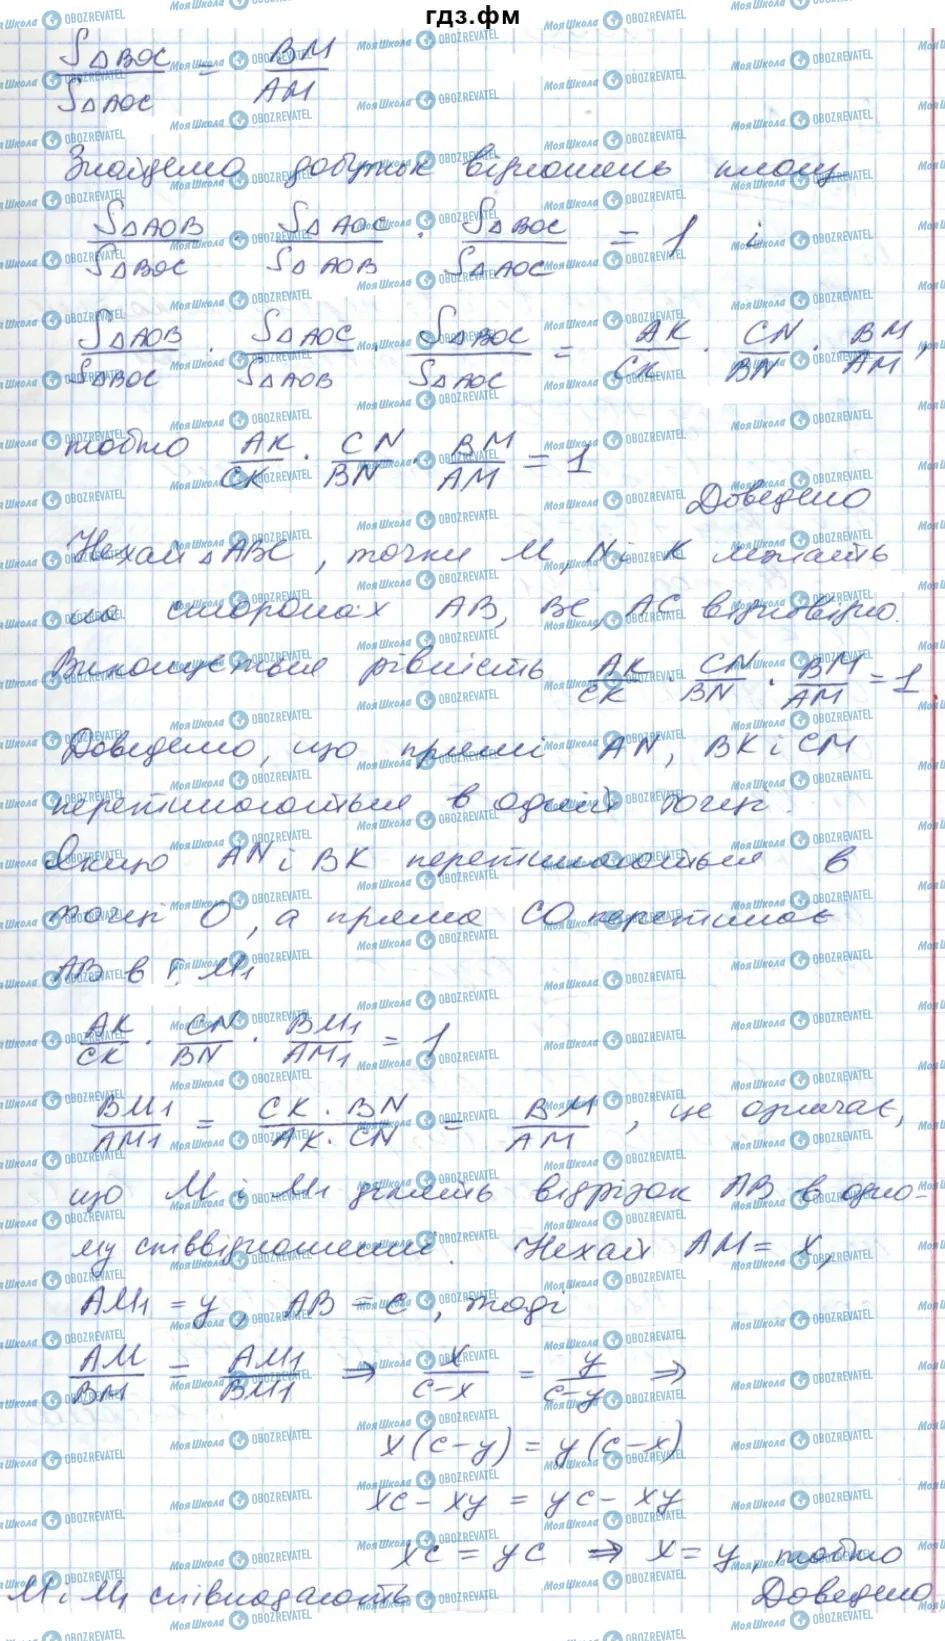 гдз.фм
S△BOC / S△AOC = BM / AM
Знайдемо добуток відношень площ
S△AOB / S△BOC · S△AOC / S△AOB · S△BOC / S△AOC = 1 і
S△AOB / S△BOC · S△AOC / S△AOB · S△BOC / S△AOC = AK / CK · CN / BN · BM / AM,
тобто AK / CK · CN / BN · BM / AM = 1
Доведено
Нехай △ABC, точки M, N і K лежать
на сторонах AB, BC, AC відповідно.
Виконується рівність AK / CK · CN / BN · BM / AM = 1.
Доведемо, що прямі AN, BK і CM
перетинаються в одній точці.
Якщо AN і BK перетинаються в
точці O, а пряма CO перетинає
AB в т. M₁
AK / CK · CN / BN · BM₁ / AM₁ = 1
BM₁ / AM₁ = CK · BN / AK · CN = BM / AM, це означає,
що M і M₁ ділять відрізок AB в одно-
му співвідношенні. Нехай AM = x,
AM₁ = y, AB = c, тоді
AM / BM = AM₁ / BM₁ ⇒ x / c-x = y / c-y ⇒
x(c-y) = y(c-x)
xc - xy = yc - xy
xc = yc ⇒ x = y, тобто
M і M₁ співпадають
Доведено
МояШкола OBOZREVATEL